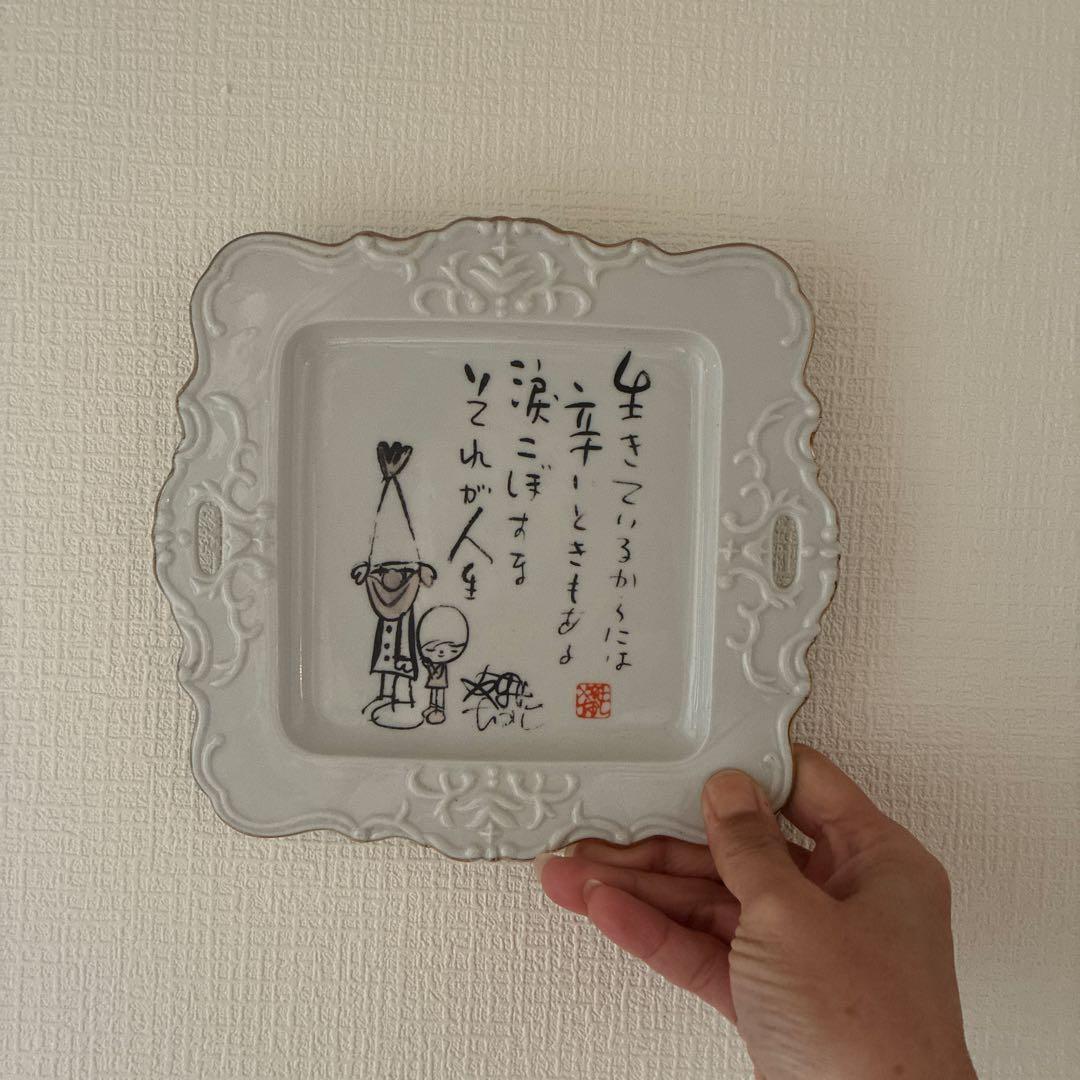 生きているからには
辛いときもある
涙こぼすな
それが人生